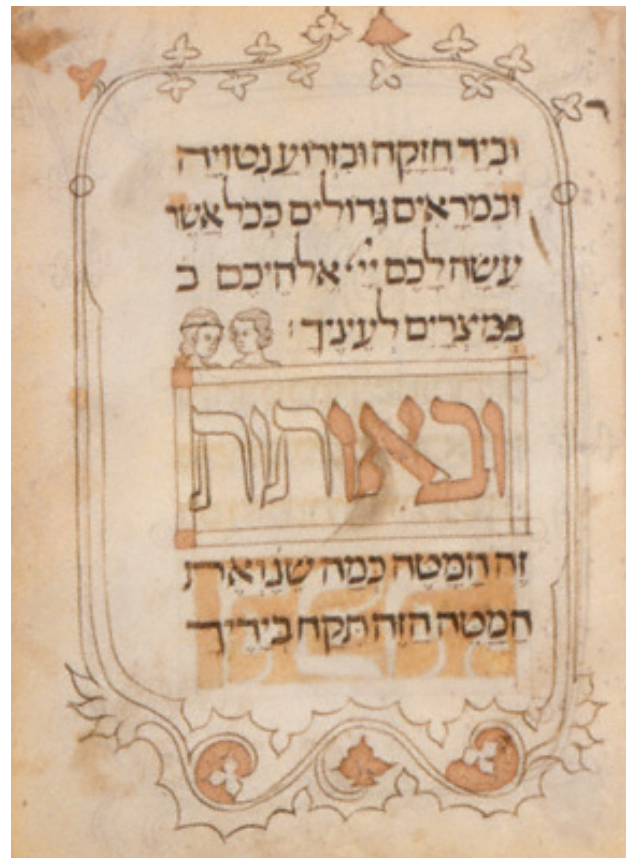 וביד חזקה ובזרוע נטויה
ובמראים גדולים ככל אשר
עשה לכם יי' אלהיכם ב
במצרים לעיניך:
ובאותות
זה המטה כמה שנ' ואת
המטה הזה תקח בידיך